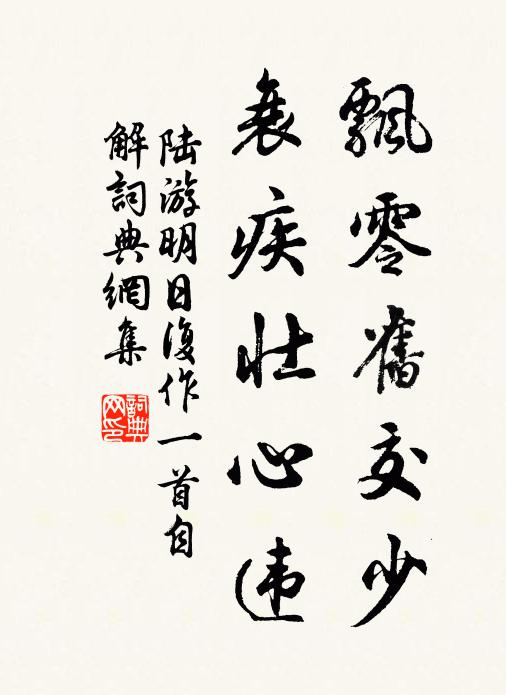 飄零舊交少
衰疾壯心违
陆游明日復作一首自
解詞典網集
詞典
网印